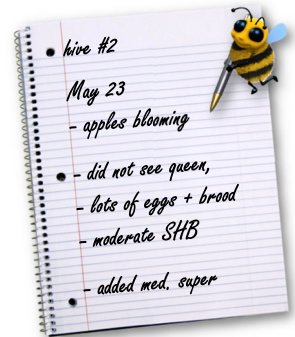 hive #2
May 23
- apples blooming
- did not see queen,
- lots of eggs + brood
- moderate SHB
- added med. super